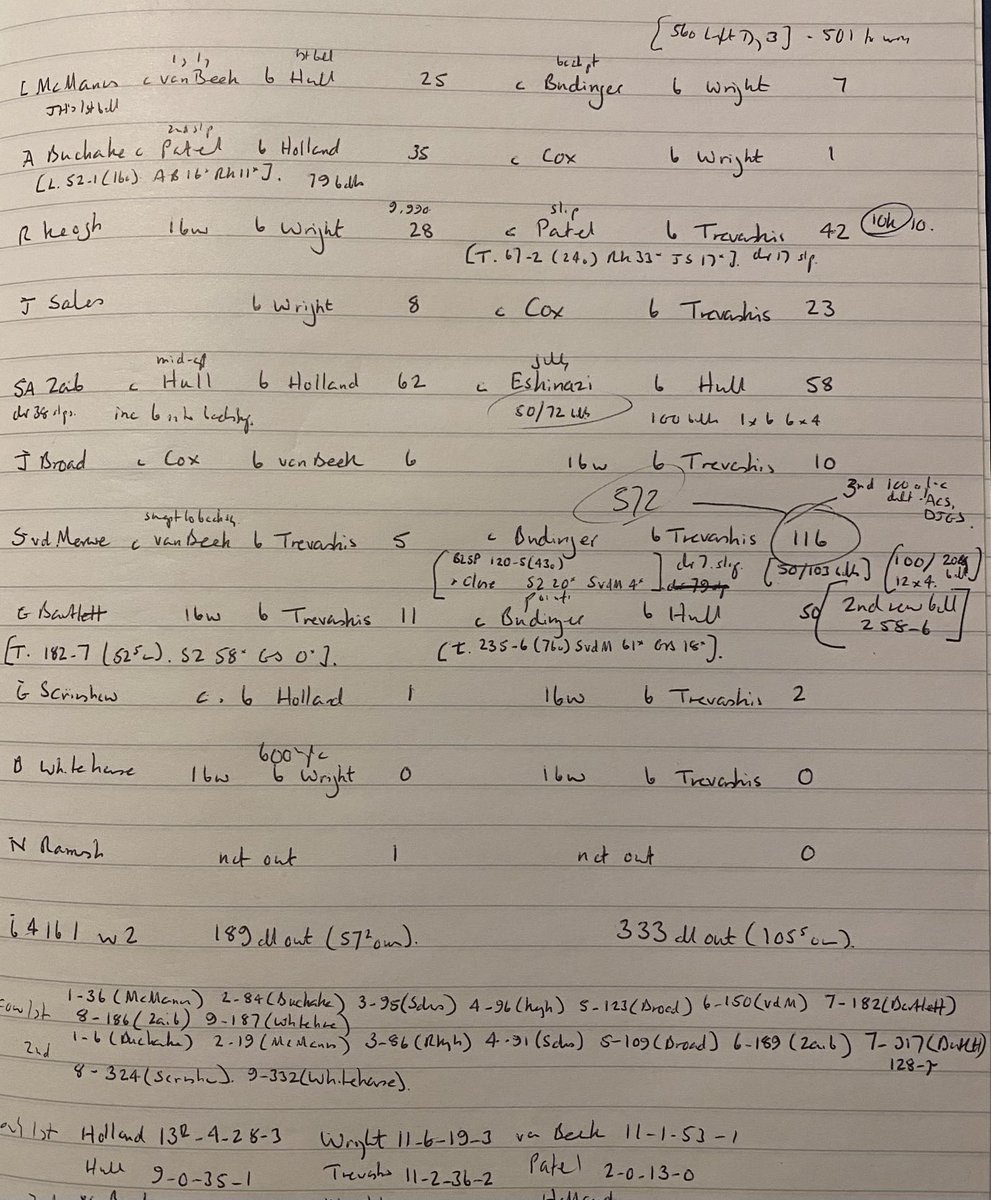 [560 left D3] - 501 to win
1, 1, 1st ball back pt
L McManus c van Beek b Hull 25 c Budinger b Wright 7
JH's 1st ball
2nd slip
A Buchake c Patel b Holland 35 c Cox b Wright 1
[L. 52-1 (16o) AB 16* Rk 11*]. 79 balls
9,990 slip
R Keogh lbw b Wright 28 c Patel b Trevaskis 42 10k 10.
[T. 67-2 (24o) Rk 33* JS 17*]. dr 17 slp.
J Sales b Wright 8 c Cox b Trevaskis 23
mid-off gully
SA Zaib c Hull b Holland 62 c Eshinazi b Hull 58
dr 38 slps. inc 6 50/72 balls 100 balls 1x6 6x4
J Broad c Cox b van Beek 6 lbw b Trevaskis 10
572 3nd 100 ACS, DJGS.
swept to backsq
S vd Merwe c van Beek b Trevaskis 5 c Budinger b Trevaskis 116
BLSP 120-5 (43o) dr 7. slip. [50/103 balls] [100/ 12x4.
Close SZ 20* SvdM 4*
point
G Bartlett lbw b Trevaskis 11 c Budinger b Hull 50 [2nd new ball 258-6]
[T. 182-7 (52⁵o). SZ 58* GS 0*]. [t. 235-6 (76o) SvdM 61* GB 18*].
G Scrimshaw c. b Holland 1 lbw b Trevaskis 2
600
B Whitehouse lbw b Wright 0 lbw b Trevaskis 0
N Ramesh not out 1 not out 0
w2 189 all out (57² overs). 333 all out (105⁵ ov).
FOW 1st 1-36 (McMann) 2-84 (Buchake) 3-95 (Sales) 4-96 (Keogh) 5-123 (Broad) 6-150 (vdM) 7-182 (Bartlett)
8-186 (Zaib) 9-187 (Whitehse)
2nd 1-6 (Buchake) 2-19 (McManns) 3-86 (RKgh) 4-91 (Sales) 5-109 (Broad) 6-189 (Zaib) 7-317 (Bartlett)
128-r
8-324 (Scrimsha). 9-332 (Whitehorse).
1st Holland 13²-4-28-3 Wright 11-6-19-3 van Beek 11-1-53-1
Hull 9-0-35-1 Trevasks 11-2-36-2 Patel 2-0-13-0